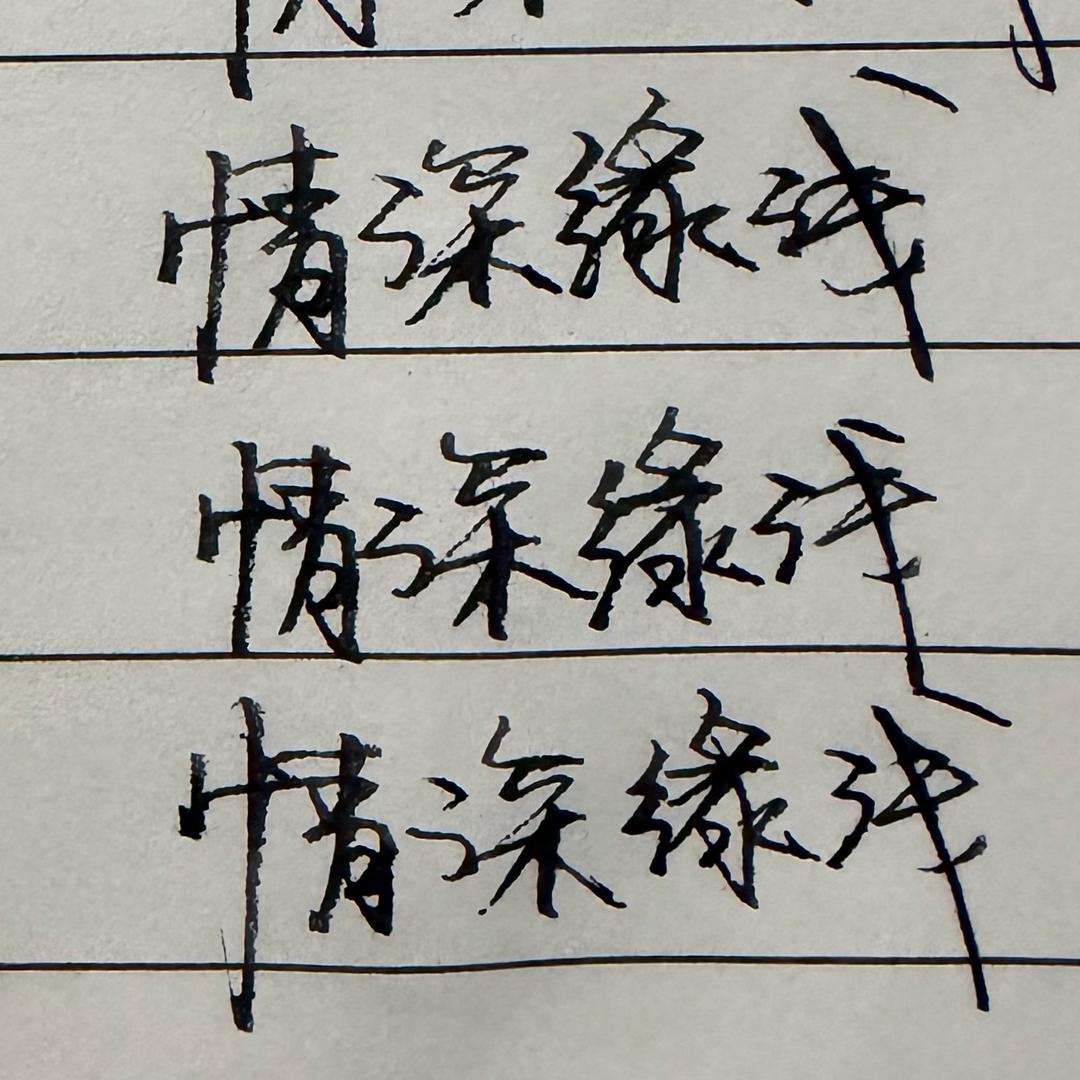 情深缘浅
情深缘浅
情深缘浅